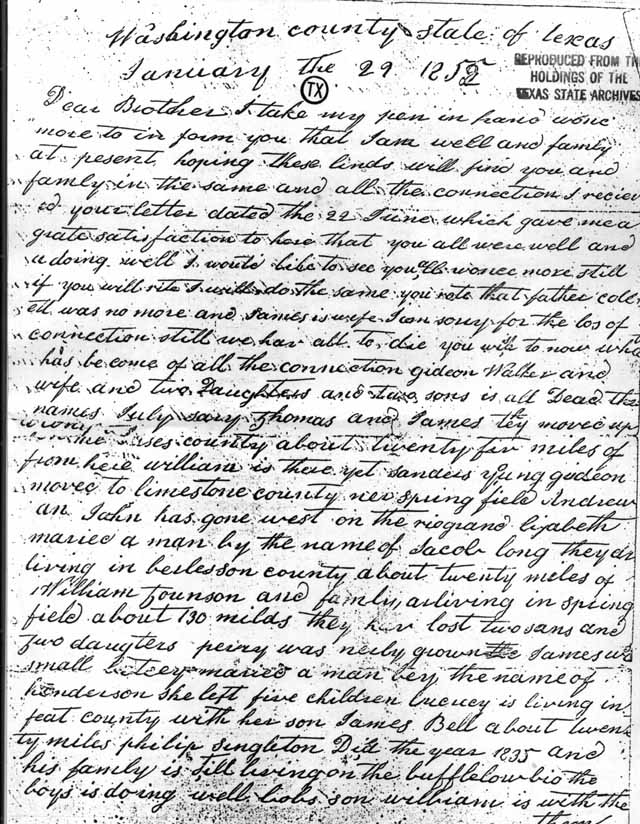 Washington county state of texas
January the 29 1852
TX
REPRODUCED FROM THE
HOLDINGS OF THE
TEXAS STATE ARCHIVES
Dear Brother I take my pen in hand wonc
more to in form you that I am well and family
at present hoping these linds will find you and
family in the same and all the connection I reciev
ed your letter dated the 22 June which gave me a
grate satisfaction to here that you all were well and
a doing well I would like to see you all wonce more still
if you will rite I will do the same you rote that father
was no more and James is wife I am sory for the los of
connection still we hav all to die you to now what
has be come of all the connection gideon Walker and
wife and two Daughters and two sons is all Dead
names July sary Thomas and James they moved up
county about twenty fiv miles of
from here william is there yet sanders yung gideon
moved to limestone county ner spring field Andrew
an John has gone west on the riogrand lizabeth
maried a man by the name of Jacob long they ar
living in berlesson county about twenty miles of
William and family ar living in spring
field about 130 milds they hav lost two sons and
two daugters was neily grown James was
small maried a man bey the name of
henderson she left five children is living in
feat county with her son James Bell about twen
ty miles philip singleton Did the year 1835 and
his family is still living on the
boys is doing well bobs son william is with the